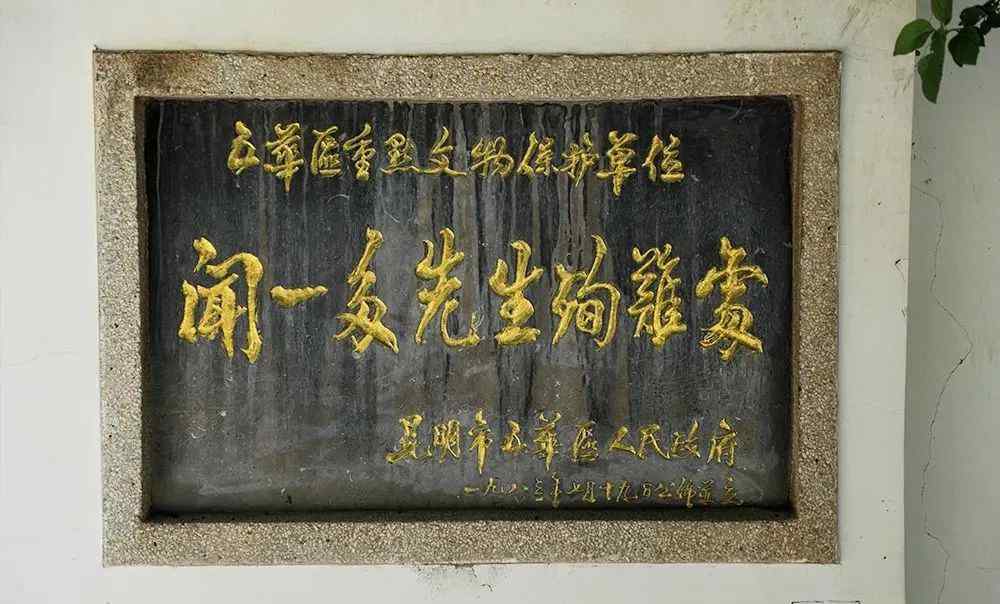 五華區重點文物保护單位
聞一多先生殉難處
昆明市五華區人民政府
一九八三年 月十九日公佈 立